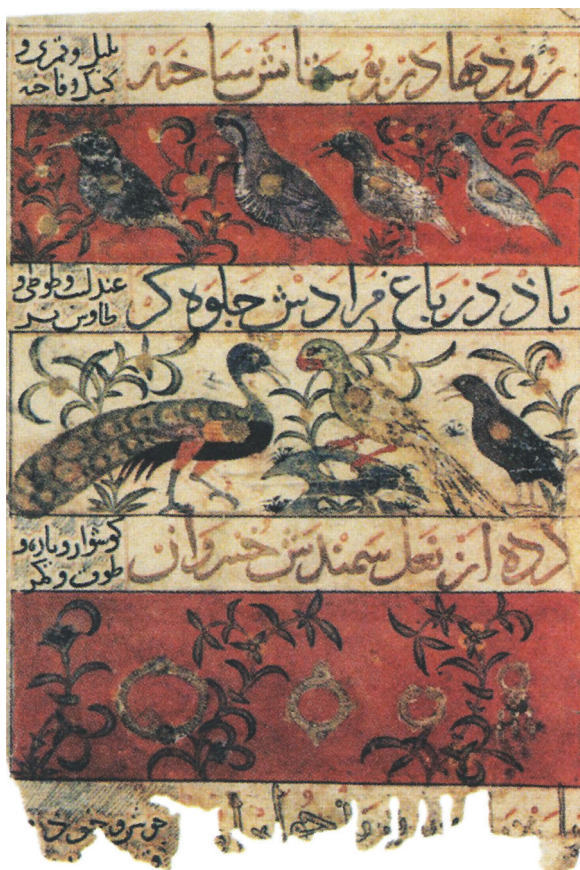 روذها در بوستانش ساخته
بلبل و قمری و
کبک و فاخته
باذ در باغ مرادش جلوه کر
عندلیب و طوطی و
طاوس نر
کرده از نعل سمندش خسروان
کوشوار و یاره و
طوق و کمر